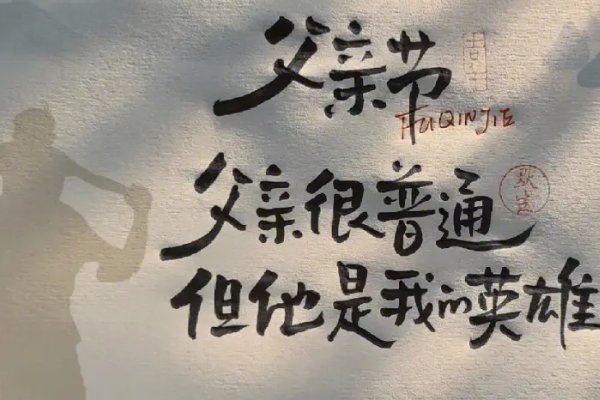 父亲节
FUQINJIE
父亲很普通
但他是我的英雄